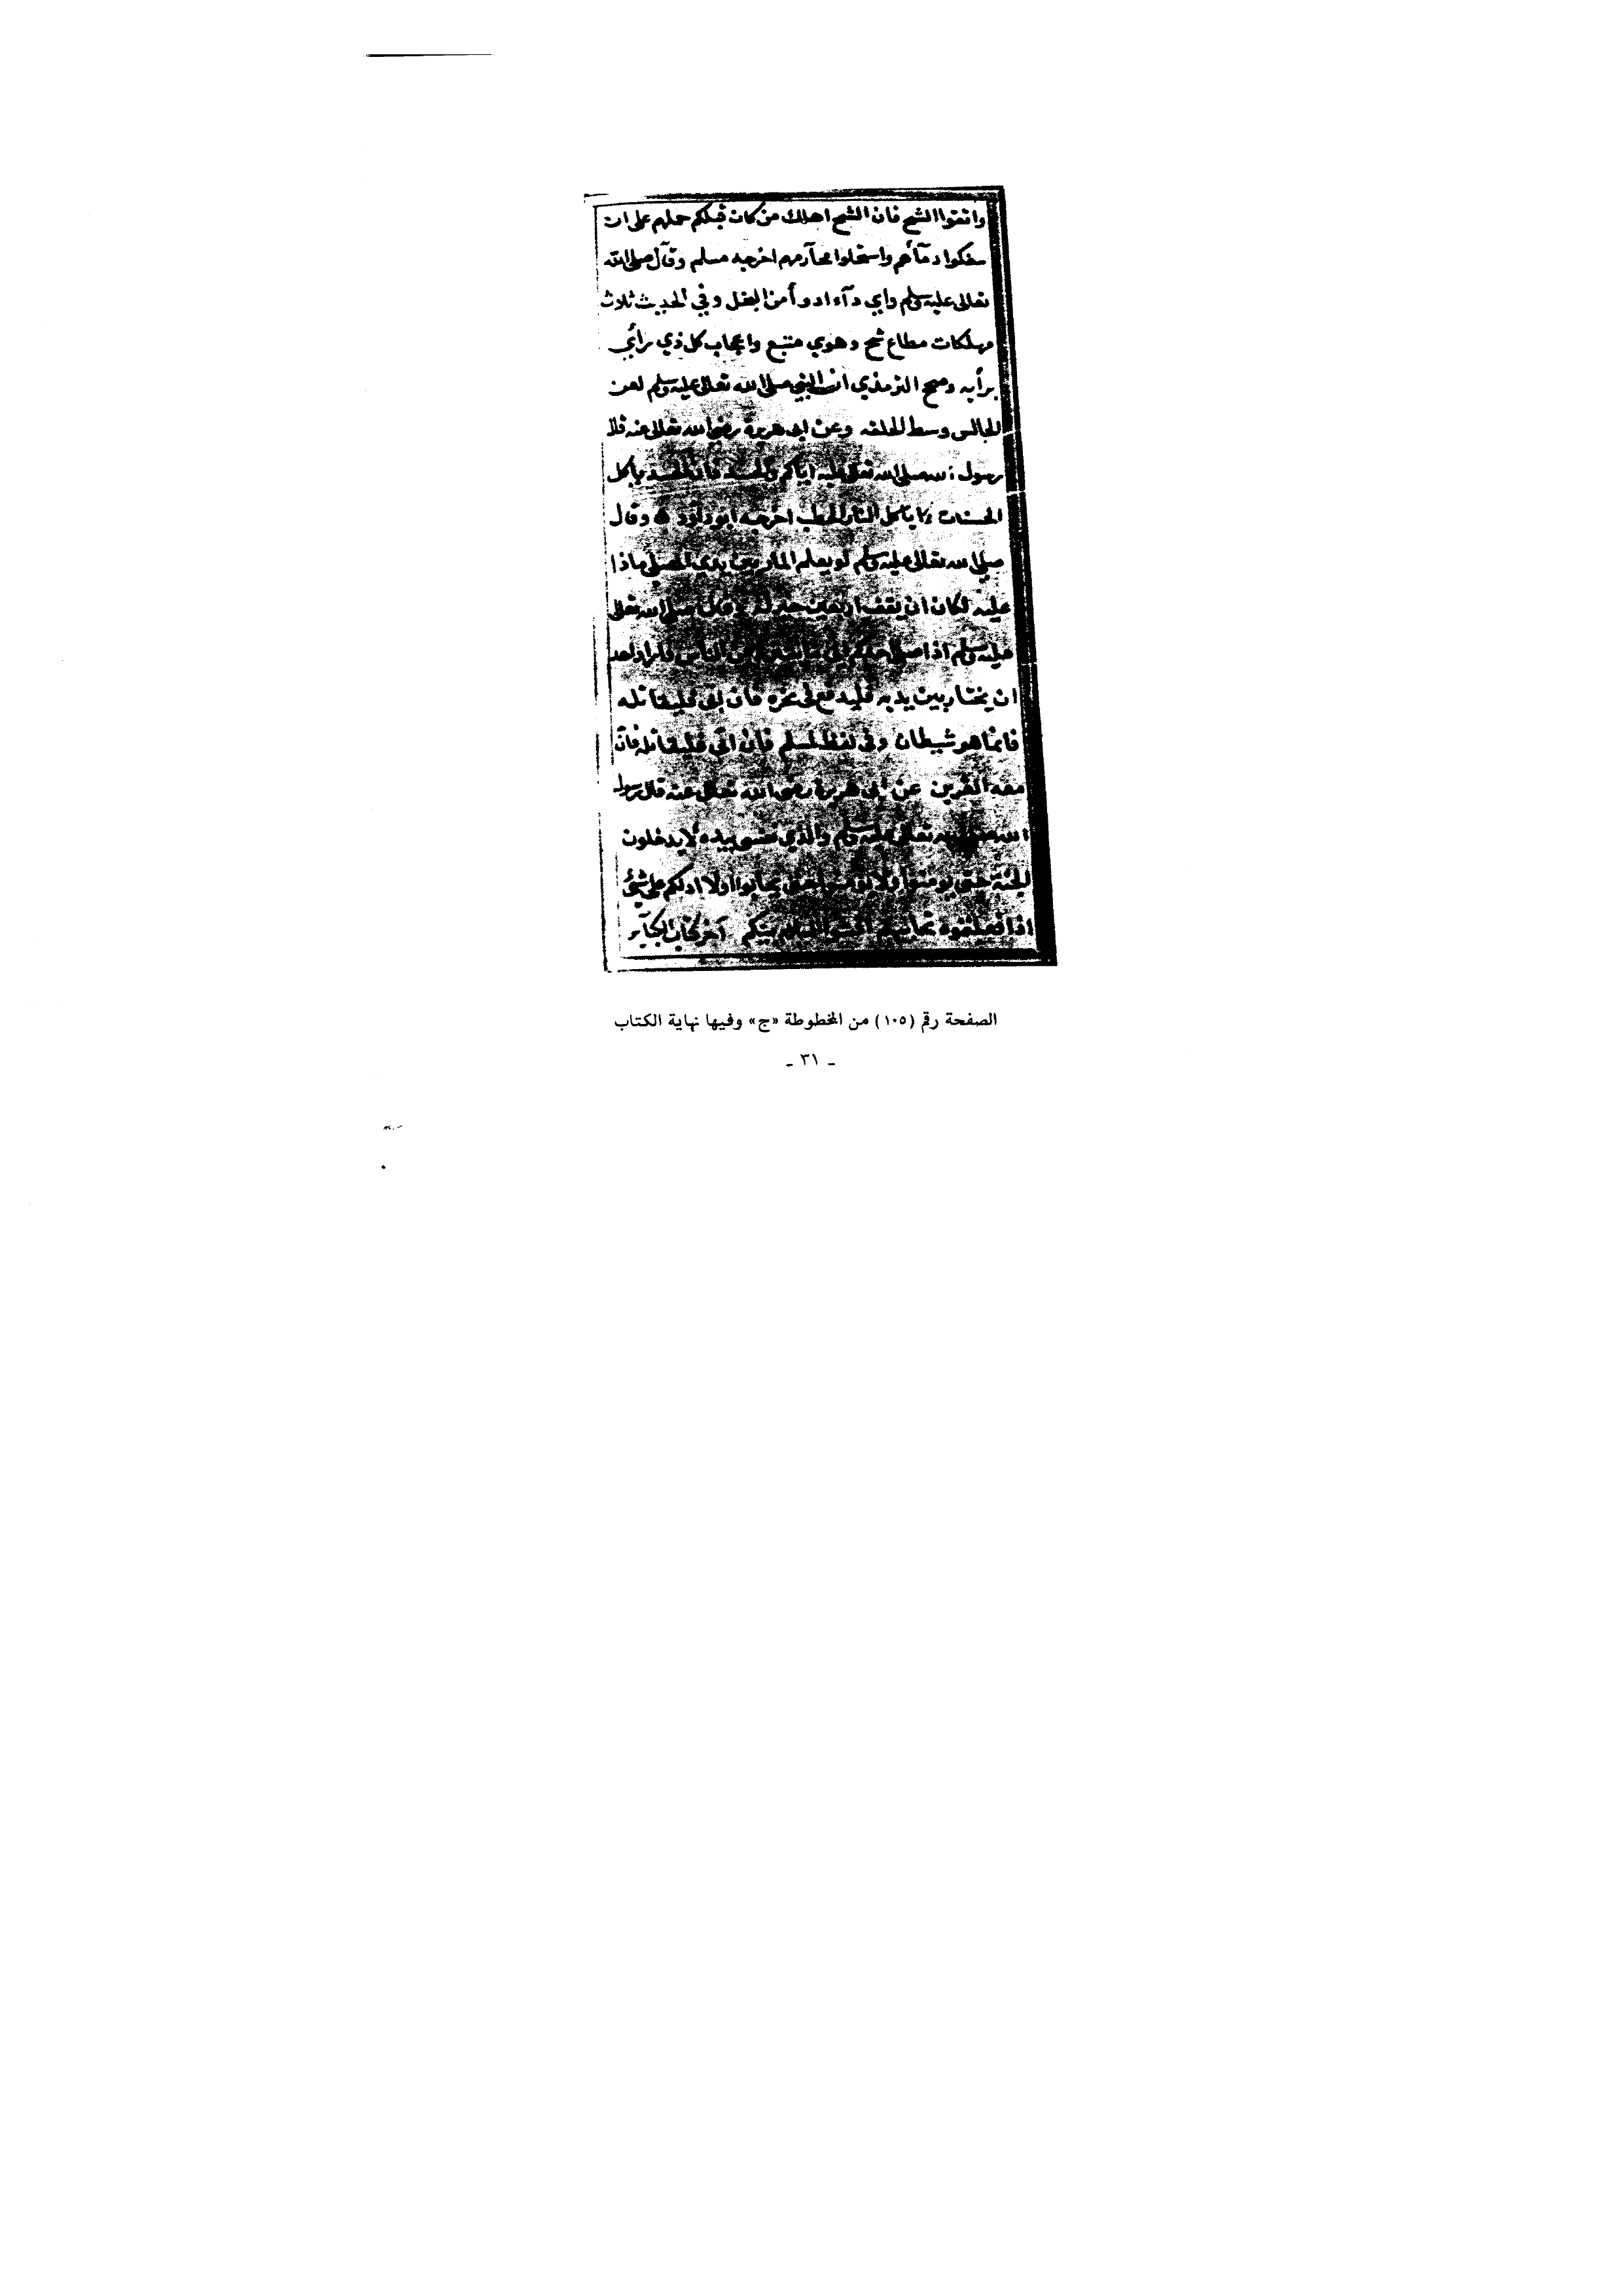 واتقوا الشح فان الشح اهلك من كان قبلكم حملهم على ان
سفكوا دمآهم واستحلوا محآرمهم اخرجه مسلم وقال صلى الله
تعالى عليه وسلم واي دآء ادوأ من البخل وفي الحديث ثلاث
مهلكات مطاع شح وهوي متبع واعجاب كل ذي رأي
برأيه وصحح الترمذي ان النبي صلى الله تعالى عليه وسلم لعن
الجالس وسط الحلقه وعن ابي هريرة رضي الله تعالى عنه قال
رسول الله صلى الله تعالى عليه اياكم والحسد فان الحسد يأكل
الحسنات كما يأكل النار الحطب اخرجه ابو داود وقال
صلى الله تعالى عليه وسلم لو يعلم المار بين يدي المصلي ماذا
عليه لكان ان يقف اربعين خير له وقال صلى الله تعالى
عليه وسلم اذا صلى احدكم الى من الناس فاراد احد
ان يختار بين يديه فليدفع في نحره فان ابى فليقاتله
فانما هو شيطان وفي لفظ لمسلم فان ابى فليقاتله فان
معه القرين عن ابي هريرة رضي الله تعالى عنه قال رسول
الله صلى الله تعالى عليه وسلم والذي نفسي بيده لا يدخلون
الجنة حتى يومنوا ولا يومنوا حتى تحابوا اولا ادلكم على شئ
اذا فعلتموه تحاببتم افشوا السلام بينكم آخر كتاب الكبآير
الصفحة رقم (١٠٥) من المخطوطة «ج» وفيها نهاية الكتاب
ـ ٣١ ـ